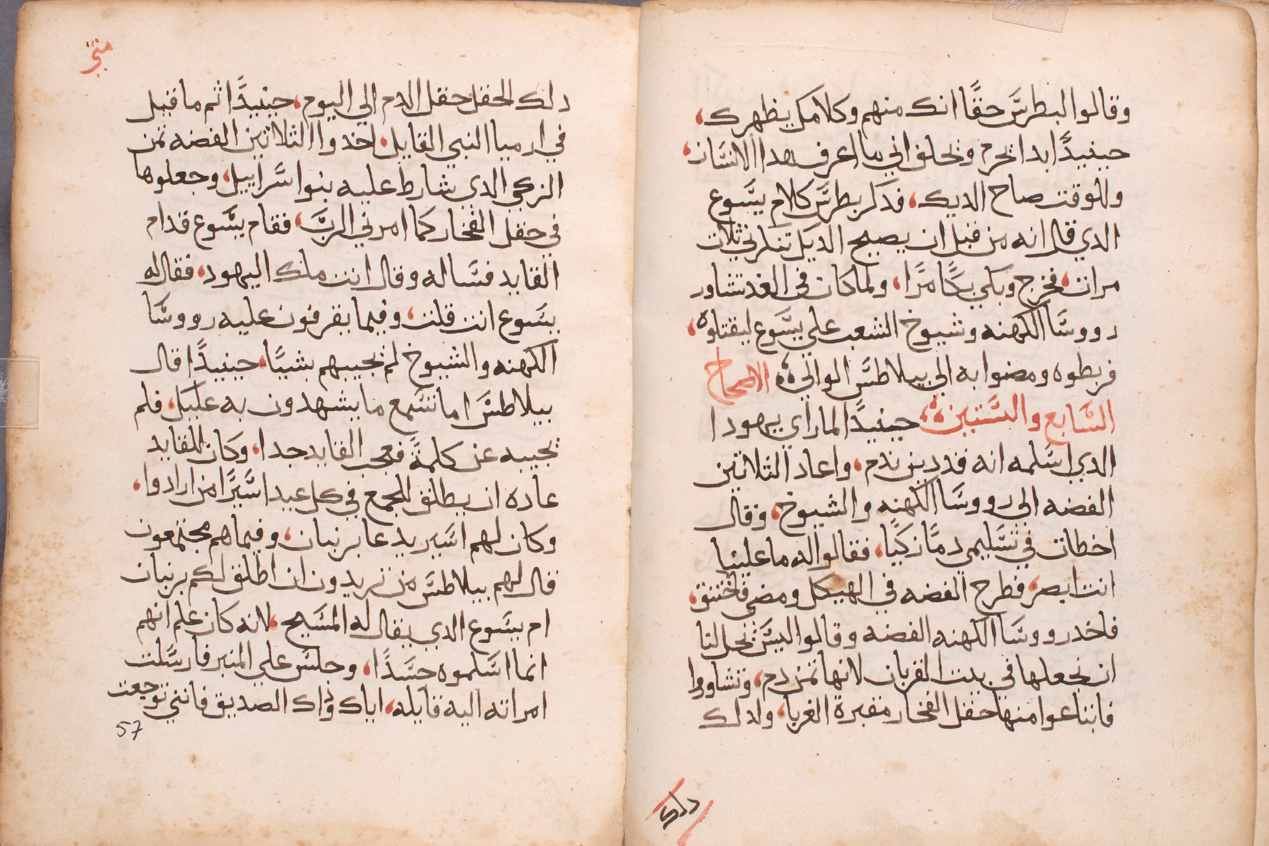 وقالوا لبطرس حقًا انك منهم وكلامك يظهرك،
حينيدًا ابدا يحرم ويحلف اني ما اعرف هدا الانسان،
وللوقت صاح الديك، فدكر بطرس كلام يسوع
الدي قال انه من قبل ان يصيح الديك تنكرني ثلات
مرات، فخرج وبكي بكًا مرًا، ولما كان في الغد تشاور
رووسا الكهنه وشيوخ الشعب علي يسوع ليقتلوه،
فربطوه ومضوا به الي بيلاطس الوالي، الاصحاح
السابع والستين، حينيدًا لما راي يهودا
الدي اسلمه انه قد دين ندم، واعاد الثلاتين
الفضه الي رووسا الكهنه والشيوخ، وقال
اخطات في تسليمي دمًا زكيًا، فقالوا له ما علينا
انت ابصر، فطرح الفضه في الهيكل ومضي فاختنق،
فاخد رووسا الكهنه الفضه وقالوا ليس يحل لنا
ان نجعلها في بيت القربان لانها تمن دم، وتشاوروا
فابتاعوا منها حقل الفخار مقبرة الغربا، ولدلك
دلك
منجز
دلك الحقل حقل الدم الي اليوم، حينيدًا تم ما قيل
في ارميا النبي القايل، اخدوا الثلاتين الفضه تمن
الزكي الدي شارط عليه بنوا سراييل، وجعلوها
في حقل الفخار كما امرني الرب، فقام يسوع قدام
القايد فساله وقال انت ملك اليهود، فقال له
يسوع انت قلت، وفيما يقرفون عليه رووسا
الكهنه والشيوخ لم يجيبهم بشيًا، حينيدًا قال
بيلاطس اما تسمع ما يشهدون به عليك، فلم
يجيبه عن كلمةً فعجب القايد جدا، وكان للقايد
عاده ان يطلق للجمع في كل عيد اسيرًا من ارادوا،
وكان لهم اسير يدعا برنبان، وفيما هم مجتمعون
قال لهم بيلاطس من تريدون ان اطلق لكم برنبان
ام يسوع الدي يقال له المسيح، لانه كان علم انهم
انما اسلموه حسدًا، وجلس علي المنبر فارسلت
امراته اليه قايله، اياك وداك الصديق فانني توجعت
57